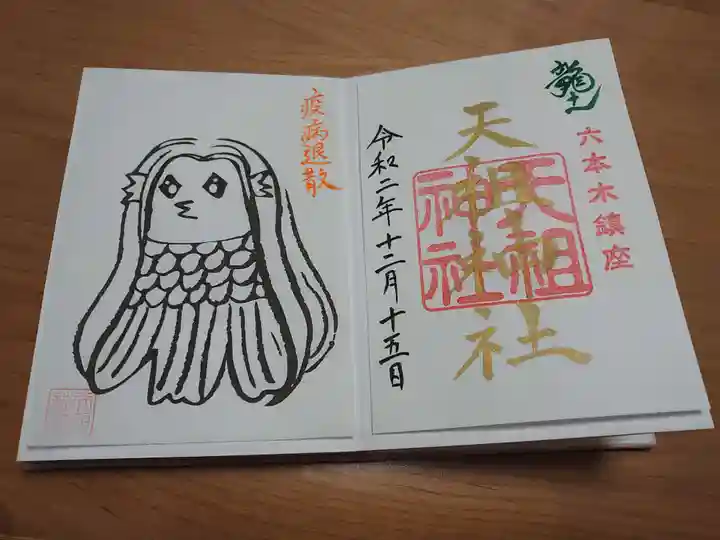 龍土
六本木鎮座
天祖神社
天祖神社
令和二年十二月十五日
疾病退散